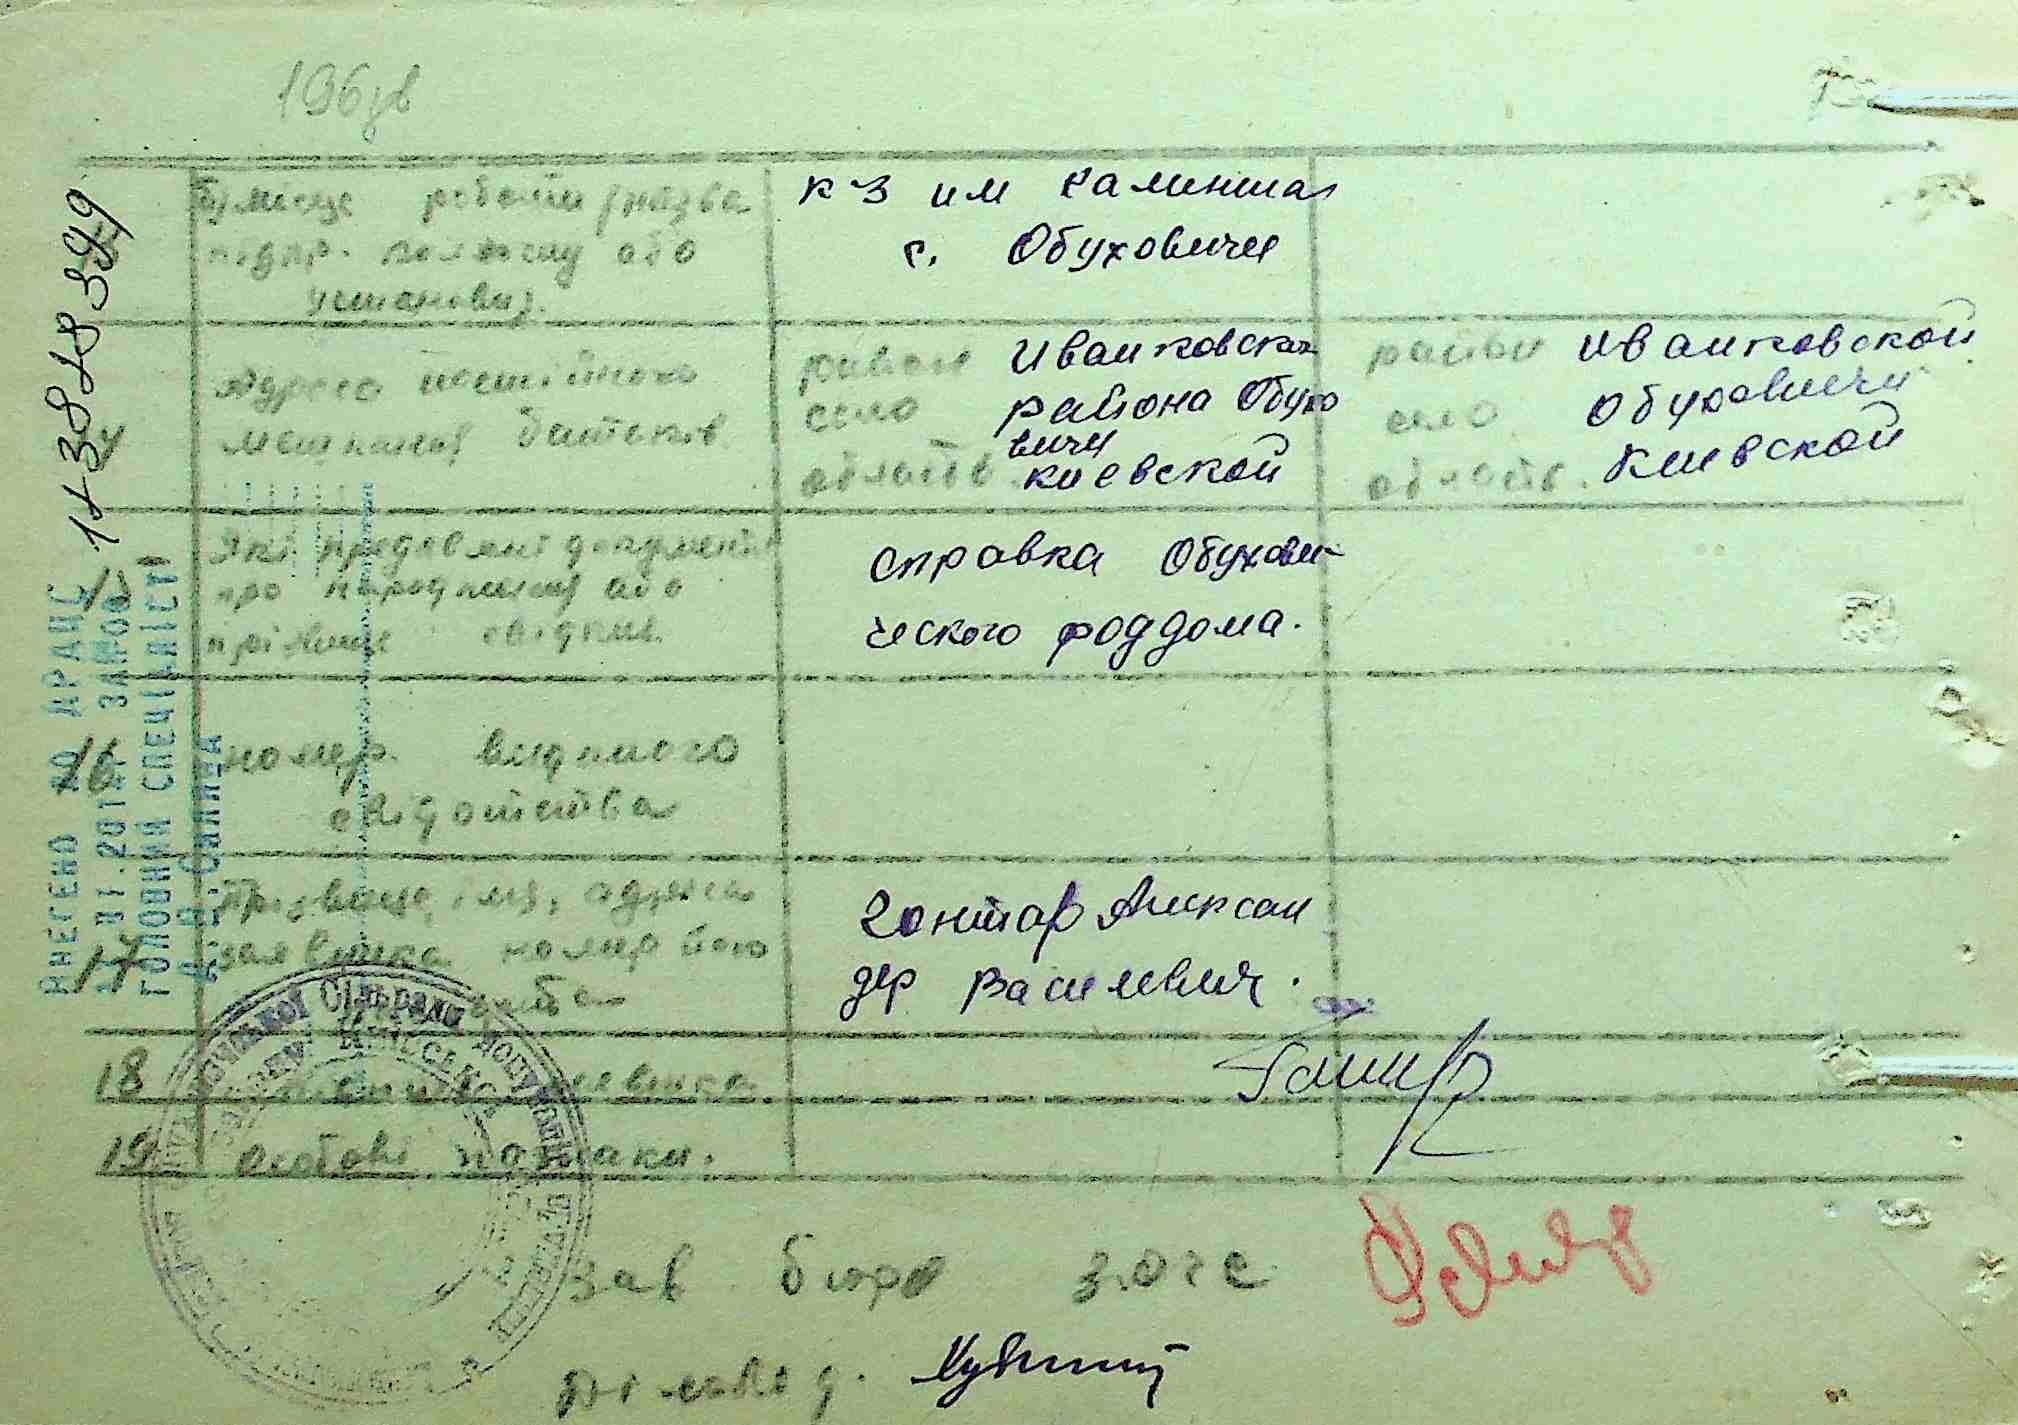 196зв
б) місце роботи (назва
підпр. колгоспу або
установи).
к-з им Калинина
с. Обуховичи
14
Адреса постійного
мешкання батьків
район Иванковска
село района Обухо
вичи
область. киевской
район Иванковской
село Обуховичи
область. Киевской
15
Які предявлені документи
про народження або
прізвище свідків
справка Обухови-
ческого роддома.
16
номер виданого
свідоцтва
17
Прізвище, імя, адреса
заявника номер його
Гонтар Алексан
дер Василевич.
18
заявника
19 особові познаки.
зав бюро загс
Діловод.
ВНЕСЕНО ДО ДРАЦС
ГОЛОВНИЙ СПЕЦІАЛІСТ